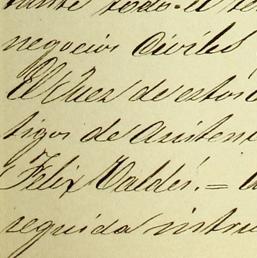 todo el
negocios Civiles
El Juez de estos
tigos de Asisten
Felix Valdés.=
seguida instru